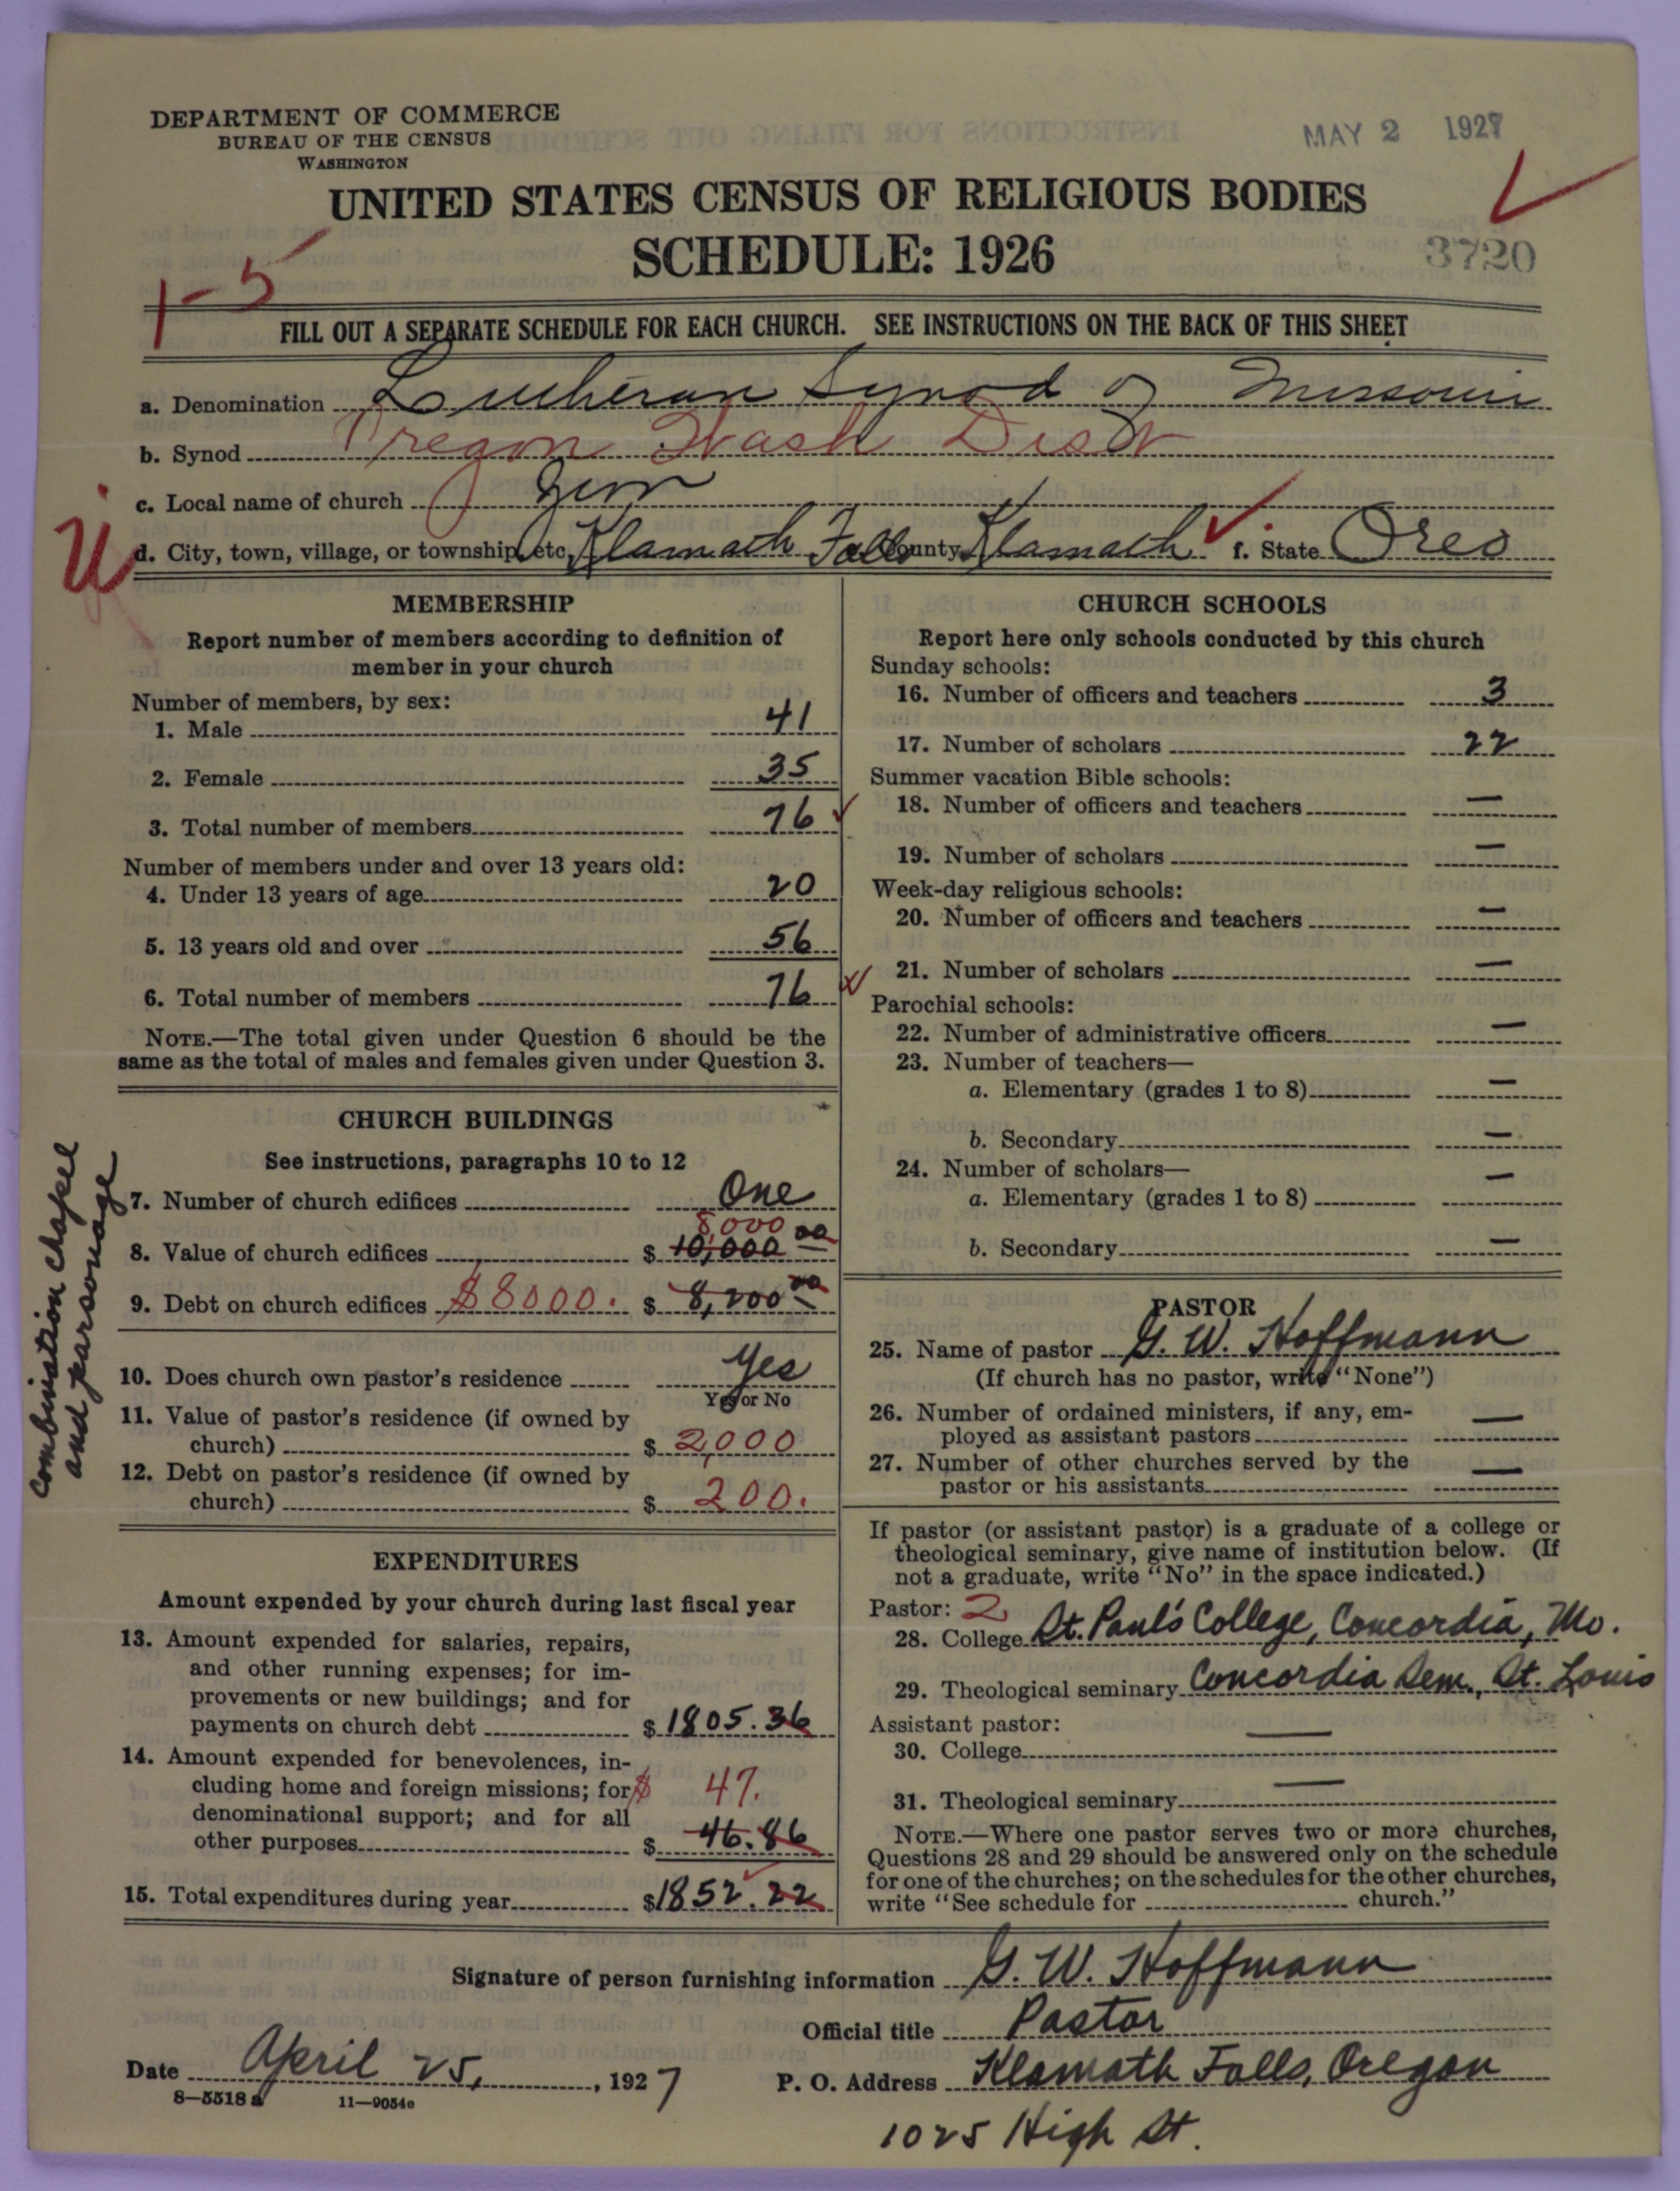 DEPARTMENT OF COMMERCE
BUREAU OF THE CENSUS
WASHINGTON
MAY 2 1927
UNITED STATES CENSUS OF RELIGIOUS BODIES
SCHEDULE: 1926
3720
1-5
FILL OUT A SEPARATE SCHEDULE FOR EACH CHURCH. SEE INSTRUCTIONS ON THE BACK OF THIS SHEET
a. Denomination Lutheran Synod of Missouri
b. Synod Oregon Wash Dist
c. Local name of church Zion
d. City, town, village, or township, etc. Klamath Falls County Klamath f. State Oreo
MEMBERSHIP
Report number of members according to definition of
member in your church
Number of members, by sex:
1. Male 41
2. Female 35
3. Total number of members 76
Number of members under and over 13 years old:
4. Under 13 years of age 20
5. 13 years old and over 56
6. Total number of members 76
NOTE.—The total given under Question 6 should be the
same as the total of males and females given under Question 3.
CHURCH BUILDINGS
See instructions, paragraphs 10 to 12
7. Number of church edifices One
8,000
8. Value of church edifices $ 10,000 00
9. Debt on church edifices $8000. $ 8,200 00
combination chapel
and parsonage
10. Does church own pastor's residence Yes
Yes or No
11. Value of pastor's residence (if owned by
church) $ 2,000
12. Debt on pastor's residence (if owned by
church) $ 200.
EXPENDITURES
Amount expended by your church during last fiscal year
13. Amount expended for salaries, repairs,
and other running expenses; for im-
provements or new buildings; and for
payments on church debt $ 1805.36
14. Amount expended for benevolences, in-
cluding home and foreign missions; for $ 47.
denominational support; and for all
other purposes $ 46.86
15. Total expenditures during year $1852.22
CHURCH SCHOOLS
Report here only schools conducted by this church
Sunday schools:
16. Number of officers and teachers 3
17. Number of scholars 22
Summer vacation Bible schools:
18. Number of officers and teachers —
19. Number of scholars —
Week-day religious schools:
20. Number of officers and teachers —
21. Number of scholars —
Parochial schools:
22. Number of administrative officers —
23. Number of teachers—
a. Elementary (grades 1 to 8) —
b. Secondary —
24. Number of scholars—
a. Elementary (grades 1 to 8) —
b. Secondary —
PASTOR
25. Name of pastor G. W. Hoffmann
(If church has no pastor, write "None")
26. Number of ordained ministers, if any, em-
ployed as assistant pastors —
27. Number of other churches served by the
pastor or his assistants —
If pastor (or assistant pastor) is a graduate of a college or
theological seminary, give name of institution below. (If
not a graduate, write "No" in the space indicated.)
Pastor: 2
28. College St. Paul's College, Concordia, Mo.
29. Theological seminary Concordia Sem., St. Louis
Assistant pastor:
30. College —
31. Theological seminary —
NOTE.—Where one pastor serves two or more churches,
Questions 28 and 29 should be answered only on the schedule
for one of the churches; on the schedules for the other churches,
write "See schedule for church."
Signature of person furnishing information G. W. Hoffmann
Official title Pastor
Date April 25, 1927
P. O. Address Klamath Falls, Oregon
8—5518a 11—9054c
1025 High St.